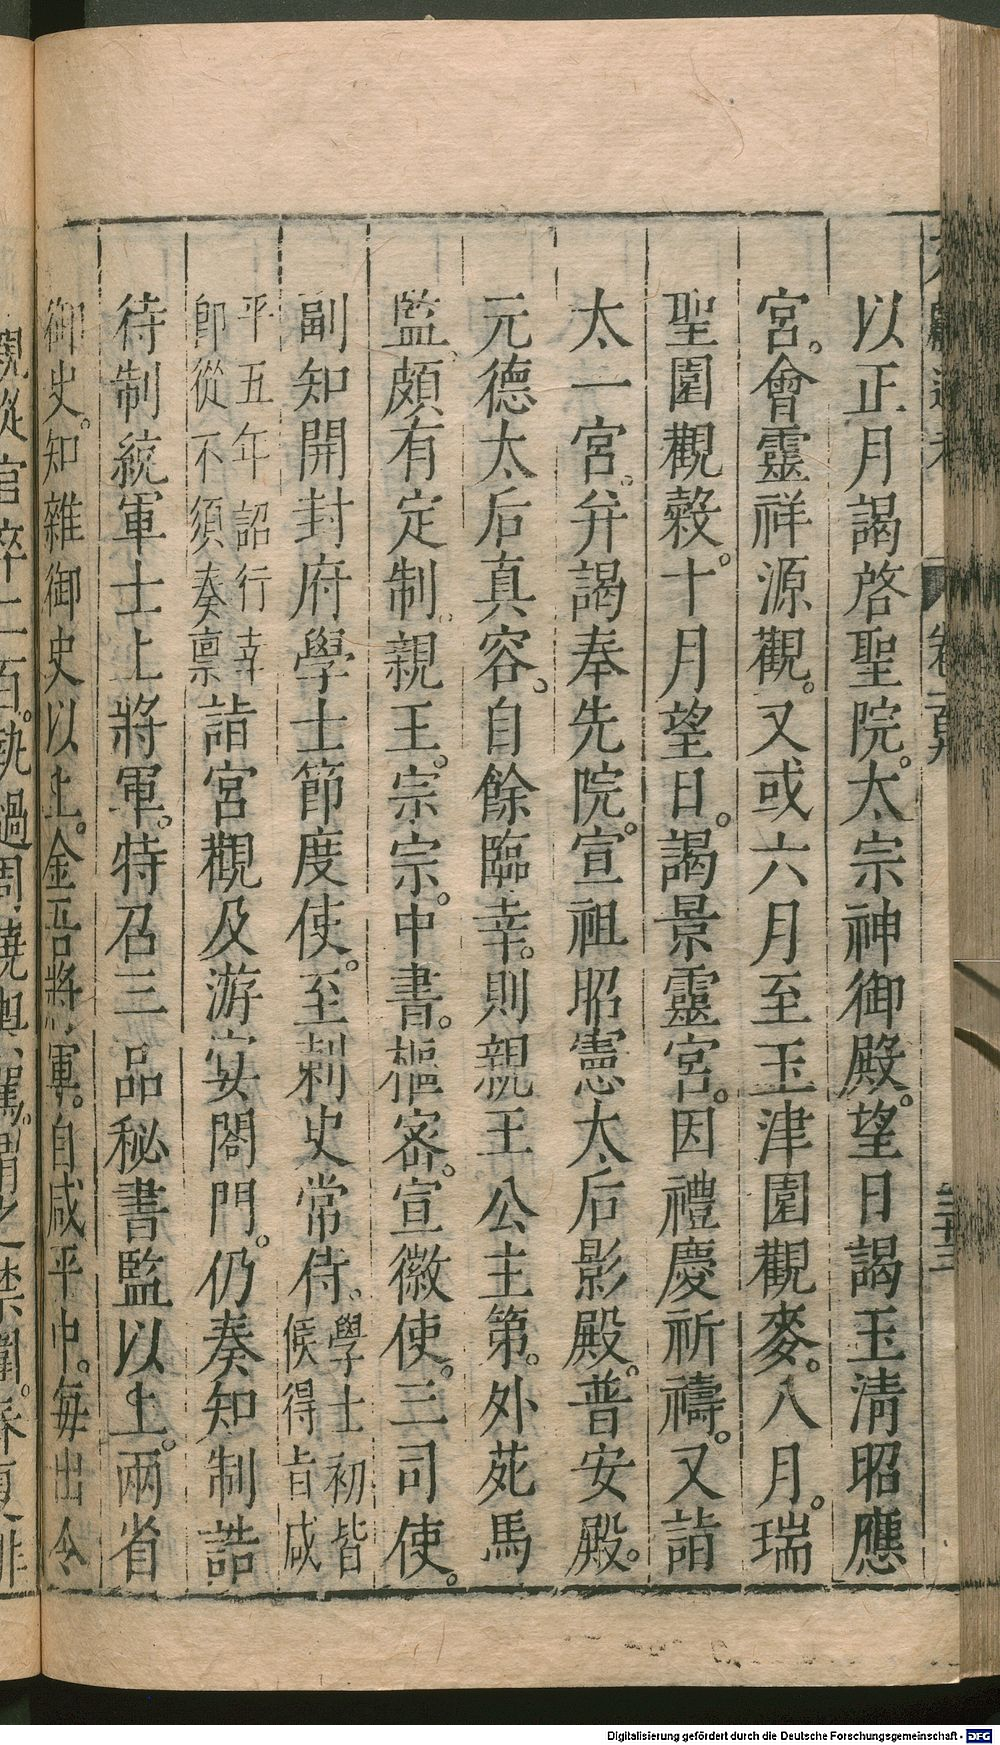 以正月謁啓聖院。太宗神御殿。望日謁玉淸昭應
宮。會靈祥源觀。又或六月至玉津園觀麥。八月。瑞
聖園觀榖。十月望日。謁景靈宮。因禮慶祈禱。又詣
太一宮。幷謁奉先院。宣祖昭憲太后影殿。普安殿。
元德太后真容。自餘臨幸。則親王公主第。外苑馬
監。頗有定制。親王。宗宗。中書。樞密。宣徽使。三司使。
副知開封府學士節度使。至刺史常侍。學士初皆候得旨咸
平五年詔行幸卽從不須奏禀詣宮觀及游宴閤門。仍奏知制誥
待制統軍士上將軍。特召三品秘書監以上。兩省
御史。知雜御史以上。金吾將軍。自咸平中。每出令
親從官卒十二百。執檛周繞輿駕。謂之禁圍。春夏緋
卷一百九
三十三
Digitalisierung gefördert durch die Deutsche Forschungsgemeinschaft - DFG